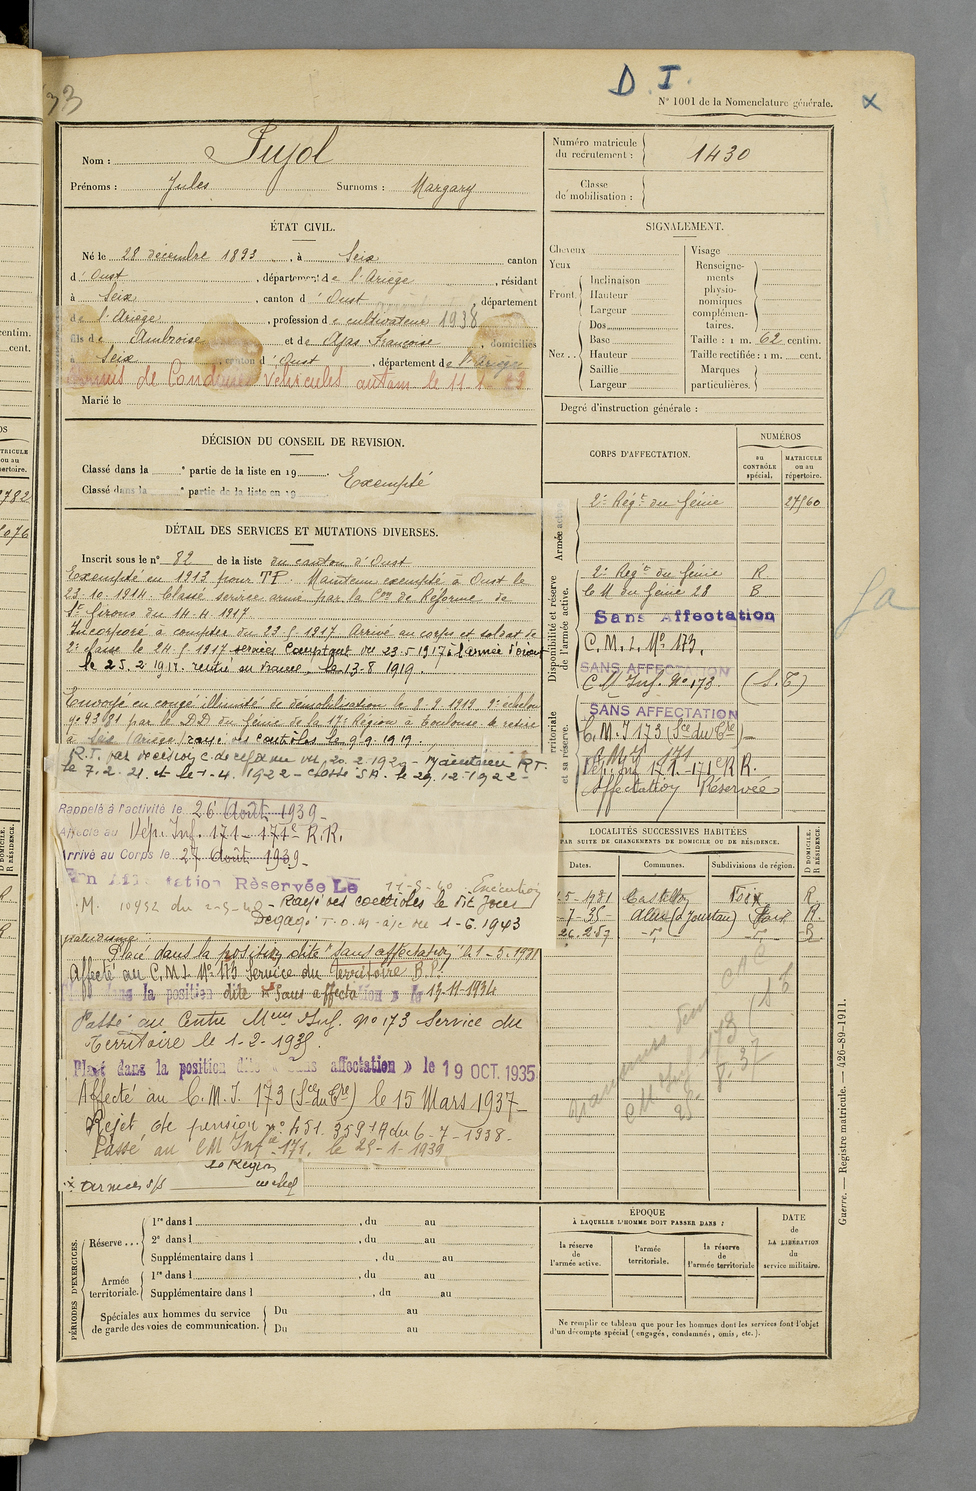 33
D. I.
N° 1001 de la Nomenclature générale.
x
Nom : Pujol
Prénoms : Jules Surnoms : Margary
Numéro matricule du recrutement : 1430
Classe de mobilisation :
ÉTAT CIVIL.
Né le 28 décembre 1893, à Seix canton
d'Oust, département de l'Ariège, résidant
à Seix, canton d'Oust, département
de l'Ariège, profession de cultivateur 1938
fils de Ambroise et de Ajas Françoise, domiciliés
à Seix, canton d'Oust, département de l'Ariège
Permis de Conduire Véhicules autom le 11-1-23
Marié le
SIGNALEMENT.
Cheveux
Yeux
Front
Inclinaison
Hauteur
Largeur
Nez
Dos
Base
Hauteur
Saillie
Largeur
Visage
Renseignements physionomiques complémentaires.
Taille : 1 m. 62 centim.
Taille rectifiée : 1 m. cent.
Marques particulières.
Degré d'instruction générale :
DÉCISION DU CONSEIL DE REVISION.
Classé dans la ° partie de la liste en 19
Classé dans la ° partie de la liste en 19
Exempté
DÉTAIL DES SERVICES ET MUTATIONS DIVERSES.
Inscrit sous le n° 82 de la liste du canton d'Oust
Exempté en 1913 pour TP. Maintenu exempté à Oust le
23.10.1914. Classé service armé par la Con de Réforme de
St Girons du 14.4.1917
Incorporé à compter du 23 5 1917 Arrivé au corps et soldat de
2e classe le 24 5 1917 services Comptant du 23.5.1917 à l'armée d'orient
le 25.2.1918. rentré en France, le 13-8 1919.
Envoyé en congé illimité de démobilisation le 8.9.1919 9e échelon
n° 93 91 par le D.D du Génie de la 17e Région à Toulouse. Se retire
à Seix (Ariège) rayé des contrôles le 9.9.1919.
R.T. par décision C. de réforme du 20.2.1920 - Maintenu R.T.
le 7.2.21 et le 1-4.1922 - Classé S.A. le 29.12.1922 -
Rappelé à l'activité le 26 Août 1939 -
Affecté au Dép. Inf. 171 - 171e R.R.
Arrivé au Corps le 27 Août 1939 -
En Affectation Réservée Le 11-5-40 - Exécution
M. 10452 du 2-5-40 - Rayé des contrôles le dit Jour
Dégagé T.O.M - a/c du 1-6.1943
paludisme
Placé dans la position dite "sans affectation" du 1-5-1931
Affecté au C.M.I. No 173 Service du Territoire B.P.
Placé dans la position dite « Sans affectation » le 13-11-1934
Passé au Centre Mmu Inf. no 173 Service du
Territoire le 1-2-1935.
Placé dans la position dite « Sans affectation » le 19 OCT. 1935
Affecté au C.M.I. 173 (Sce du Tre) le 15 Mars 1937 -
Rejet de pension no 451.359 1A du 6-7-1938 -
Passé au CM Infie 171, le 25-1-1939
CORPS D'AFFECTATION.
NUMÉROS
au CONTRÔLE spécial.
MATRICULE ou au répertoire.
Armée active
2e Régt du Génie 27560
Disponibilité et réserve de l'armée active.
2e Régt du Génie R.
C M du Génie 28 B
Sans Affectation
C. M. I. No 173.
SANS AFFECTATION
C M Inf. No 173 (S.T)
SANS AFFECTATION
C. M. I 173 (Sce du Tre) -
C M I 171
Dép. Inf 171 - 171e R R.
Affectation Réservée
LOCALITÉS SUCCESSIVES HABITÉES
PAR SUITE DE CHANGEMENTS DE DOMICILE OU DE RÉSIDENCE.
Dates. Communes. Subdivisions de région.
D DOMICILE. R RÉSIDENCE.
5-1931 Foix R
-7-35- R.
PÉRIODES D'EXERCICES.
Réserve
1re dans l , du au
2e dans l , du au
Supplémentaire dans l , du au
Armée territoriale.
1re dans l , du au
Supplémentaire dans l , du au
Spéciales aux hommes du service de garde des voies de communication.
Du au
Du au
ÉPOQUE
À LAQUELLE L'HOMME DOIT PASSER DANS :
la réserve de l'armée active.
l'armée territoriale.
la réserve de l'armée territoriale
DATE de LA LIBÉRATION du service militaire.
Ne remplir ce tableau que pour les hommes dont les services font l'objet
d'un décompte spécial (engagés, condamnés, omis, etc.).
Guerre. — Registre matricule. — 426-89-1911.